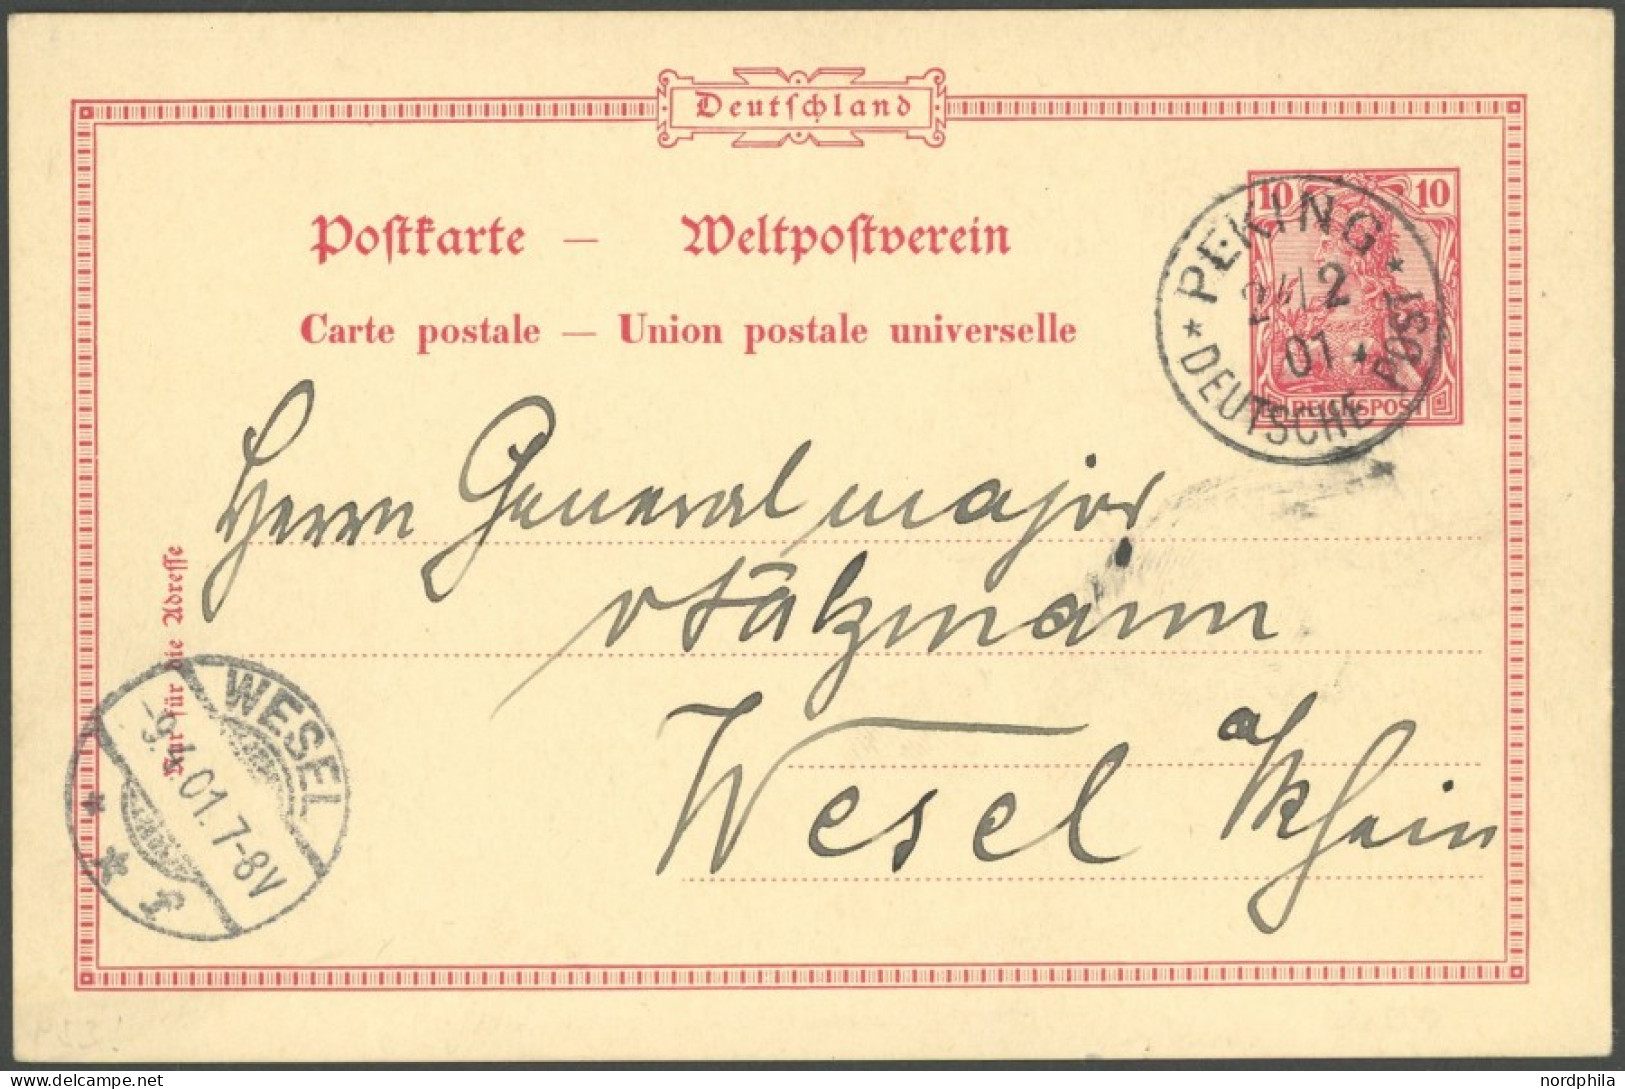 Deutschland
Postkarte — Weltpostverein
Carte postale — Union postale universelle
10 10
REICHSPOST
PEKING
2
01
DEUTSCHE POST
Herrn Generalmajor
Wesel a/Rhein
Nur für die Adresse
WESEL
-9.4.01.7-8V
f
nordphila